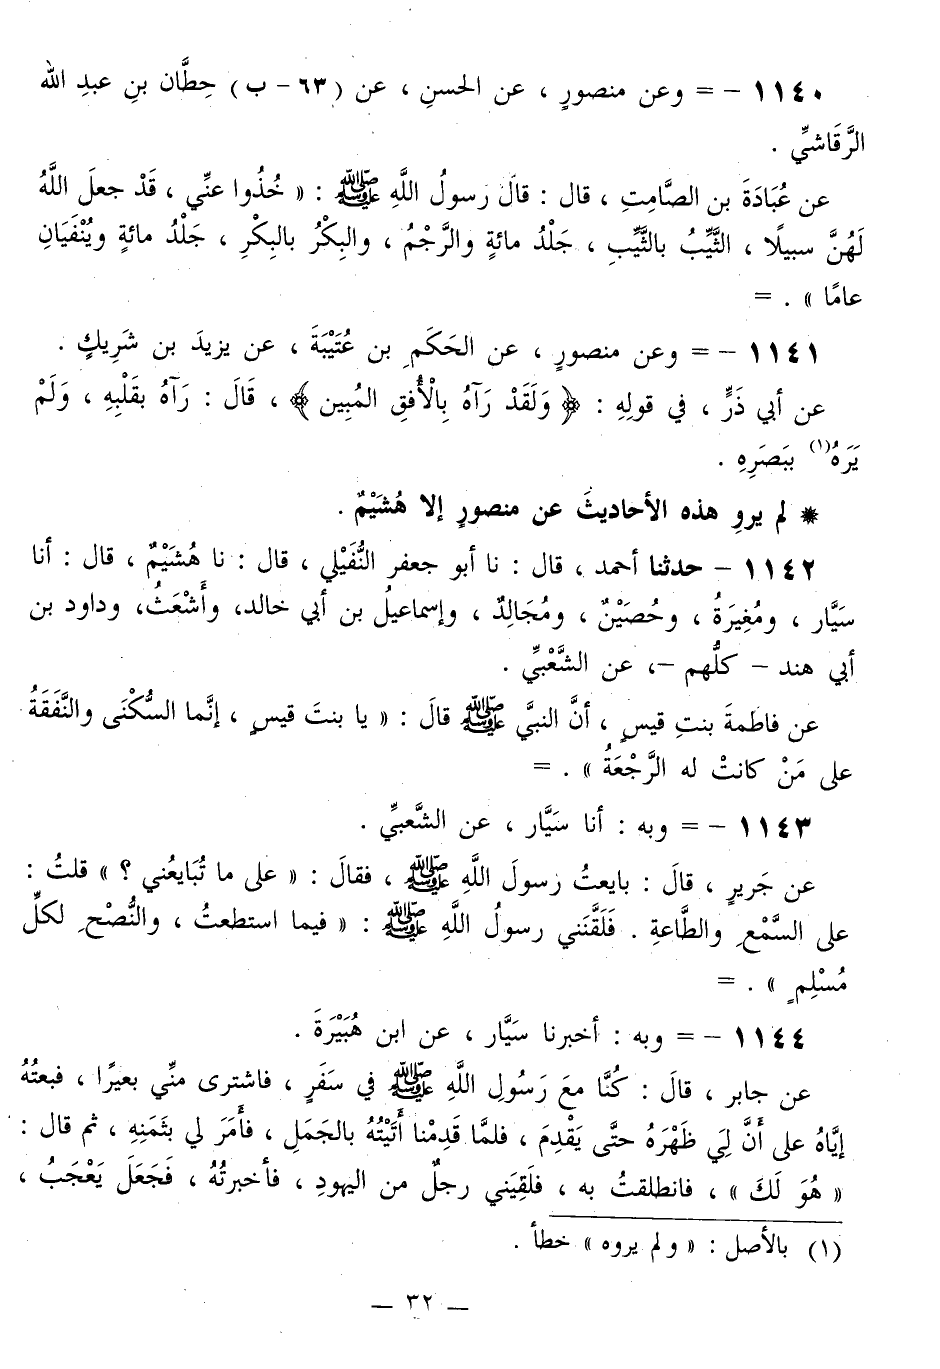 ١١٤٠ – = وعن منصورٍ ، عن الحسنِ ، عن (٦٣ - ب) حِطَّان بنِ عبدِ الله
الرَّقَاشيِّ .
عن عُبَادَةَ بن الصَّامِتِ ، قال : قالَ رسولُ اللَّهِ ﷺ : « خُذُوا عنِّي ، قَدْ جعلَ اللَّهُ
لَهُنَّ سبيلًا ، الثَّيِّبُ بالثَّيِّبِ ، جَلْدُ مائةٍ والرَّجْمُ ، والبِكْرُ بالبِكْرِ ، جَلْدُ مائةٍ ويُنْفَيَانِ
عامًا » . =
١١٤١ – = وعن منصورٍ ، عن الحَكَمِ بن عُتَيْبَةَ ، عن يزيدَ بن شَرِيكٍ .
عن أبي ذَرٍّ ، في قولِهِ : ﴿ وَلَقَدْ رَآهُ بِالْأُفقِ المُبِين ﴾ ، قَالَ : رَآهُ بقَلْبِهِ ، وَلَمْ
يَرَهُ(١) ببَصَرِهِ .
* لم يروِ هذه الأحاديثَ عن منصورٍ إلا هُشَيْمٌ .
١١٤٢ – حدثنا أحمد ، قال : نا أبو جعفر النُّفَيْلي ، قال : نا هُشَيْمٌ ، قال : أنا
سَيَّار ، ومُغِيرَةُ ، وحُصَيْنٌ ، ومُجَالِدٌ ، وإسماعيلُ بن أبي خالد، وأَشْعَثُ، وداود بن
أبي هند – كلُّهم –، عن الشَّعْبيِّ .
عن فاطمةَ بنتِ قيسٍ ، أنَّ النبيَّ ﷺ قالَ : « يا بنتَ قيسٍ ، إنَّما السُّكْنَى والنَّفَقَةُ
على مَنْ كانتْ له الرَّجْعَةُ » . =
١١٤٣ – = وبه : أنا سَيَّار ، عن الشَّعبيِّ .
عن جَريرٍ ، قالَ : بايعتُ رسولَ اللَّهِ ﷺ ، فقالَ : « على ما تُبَايعُني ؟ » قلتُ :
على السَّمْعِ والطَّاعةِ . فَلَقَّنَني رسولُ اللَّهِ ﷺ : « فيما استطعتُ ، والنُّصْحِ لكلِّ
مُسْلِمٍ » . =
١١٤٤ – = وبه : أخبرنا سَيَّار ، عن ابن هُبَيْرَةَ .
عن جابر ، قالَ : كُنَّا معَ رَسُولِ اللَّهِ ﷺ في سَفَرٍ ، فاشترى منِّي بعيرًا ، فبعتُهُ
إيَّاهُ على أَنَّ لِيَ ظَهْرَهُ حتَّى يَقْدِمَ ، فلمَّا قَدِمْنا أَتَيْتُهُ بالجَمَلِ ، فأَمَرَ لي بثَمَنِهِ ، ثم قال :
« هُوَ لَكَ » ، فانطلقتُ به ، فلَقِيَني رجلٌ من اليهودِ ، فأخبرتُهُ ، فَجَعَلَ يَعْجَبُ ،
(١) بالأصل : « ولم يروه » خطأ .
– ٣٢ –